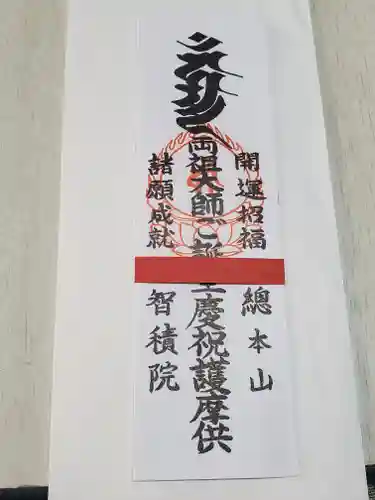 開運招福
總本山
両祖大師ご誕生慶祝護摩供
諸願成就
智積院